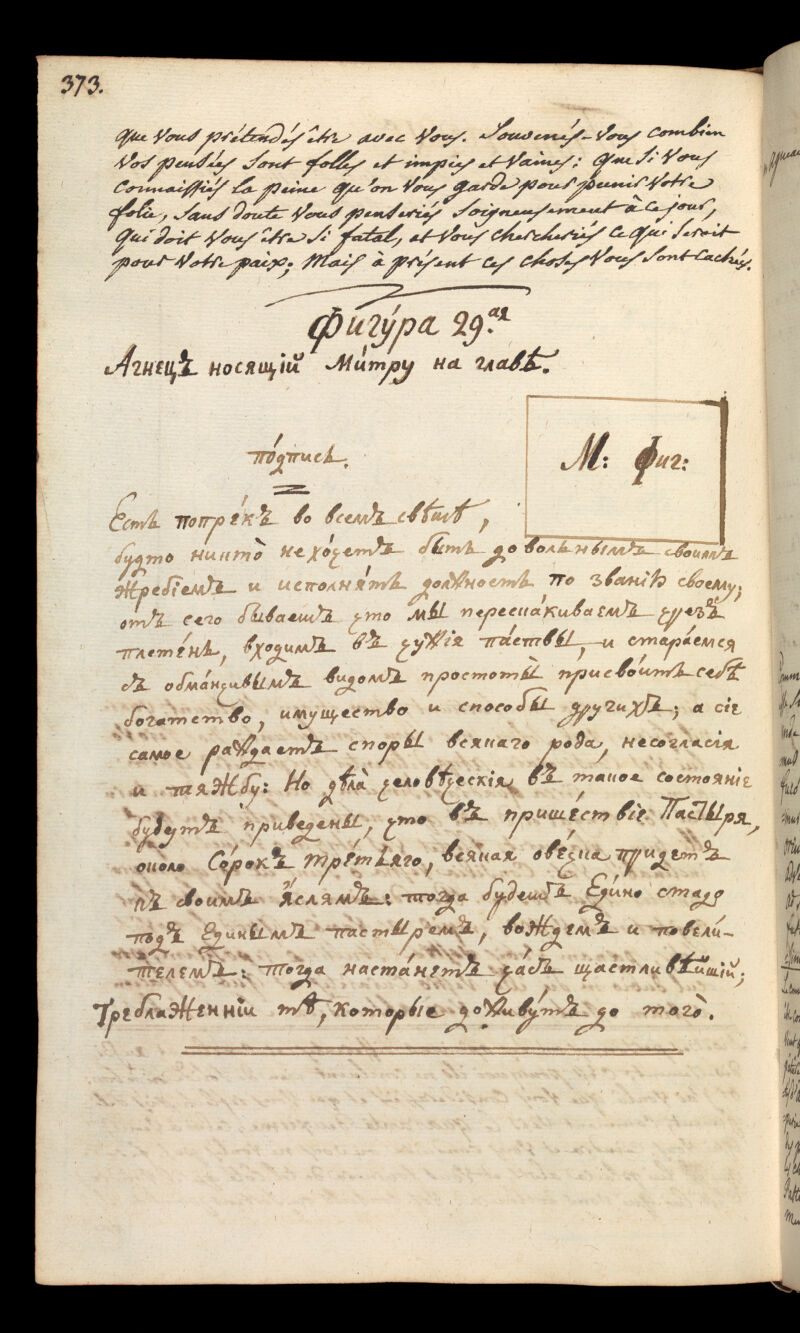 373.
que Vous prétendés être avec Vous. Souvenés-Vous combien
Vos pensées Sont folles et impies et Vaines: Que Si Vous
Connaissiés la peine qu'on Vous garde pour punir Votre
folie, Sans doute Vous penseriés Soigneusement à ce jour,
Qui doit Vous être Si fatal, et Vous chercheriés ce qui Seroit
pour Votre paix; Mais à présent ces choses Vous Sont Cachées.
Фигу́ра 29.ая
Агнецъ носящій Ми́тру на главѣ.
М: Фиг:
по́дпись.
Есть попре́къ во всемъ свѣтѣ,
будто никто̀ не хо́четъ быть довольнымъ своимъ
жребіемъ и исполня́ть должность по званію своему;
отъ сего бываетъ что мы переска́киваемъ чрезъ
плете́нь, входимъ въ чужія па́ствы, и стара́емся
съ обма́нчивымъ видомъ простоты̀ присво́ить себѣ
богатство, имущество и способы другихъ; а сіе
самое раждаетъ споры всякаго рода, несогласія
и тяжбу: Но дѣла̀ человѣческія въ такое состояніе
будутъ приведены, что въ прише́ствіе Пастыря,
около Со́рокъ тре́тьяго, всякая ове́чка придетъ
къ своимъ я́слямъ: тогда будетъ Едино стадо
подъ Единымъ пастыремъ, вождемъ и повели-
телемъ: тогда наста́нетъ ча́съ щастливѣйшій;
Треблаженніи тѣ, которые доживу́тъ до того̀.